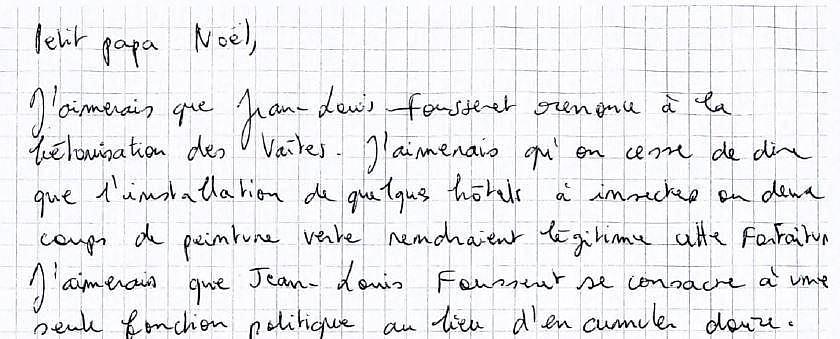 Petit papa Noël,
J'aimerais que Jean-Louis Fousseret renonce à la
bétonisation des Vaîtes. J'aimerais qu'on cesse de dire
que l'installation de quelques hôtels à insectes ou deux
coups de peinture verte rendraient légitime cette forfaiture
J'aimerais que Jean-Louis Fousseret se consacre à une
seule fonction politique au lieu d'en cumuler douze.